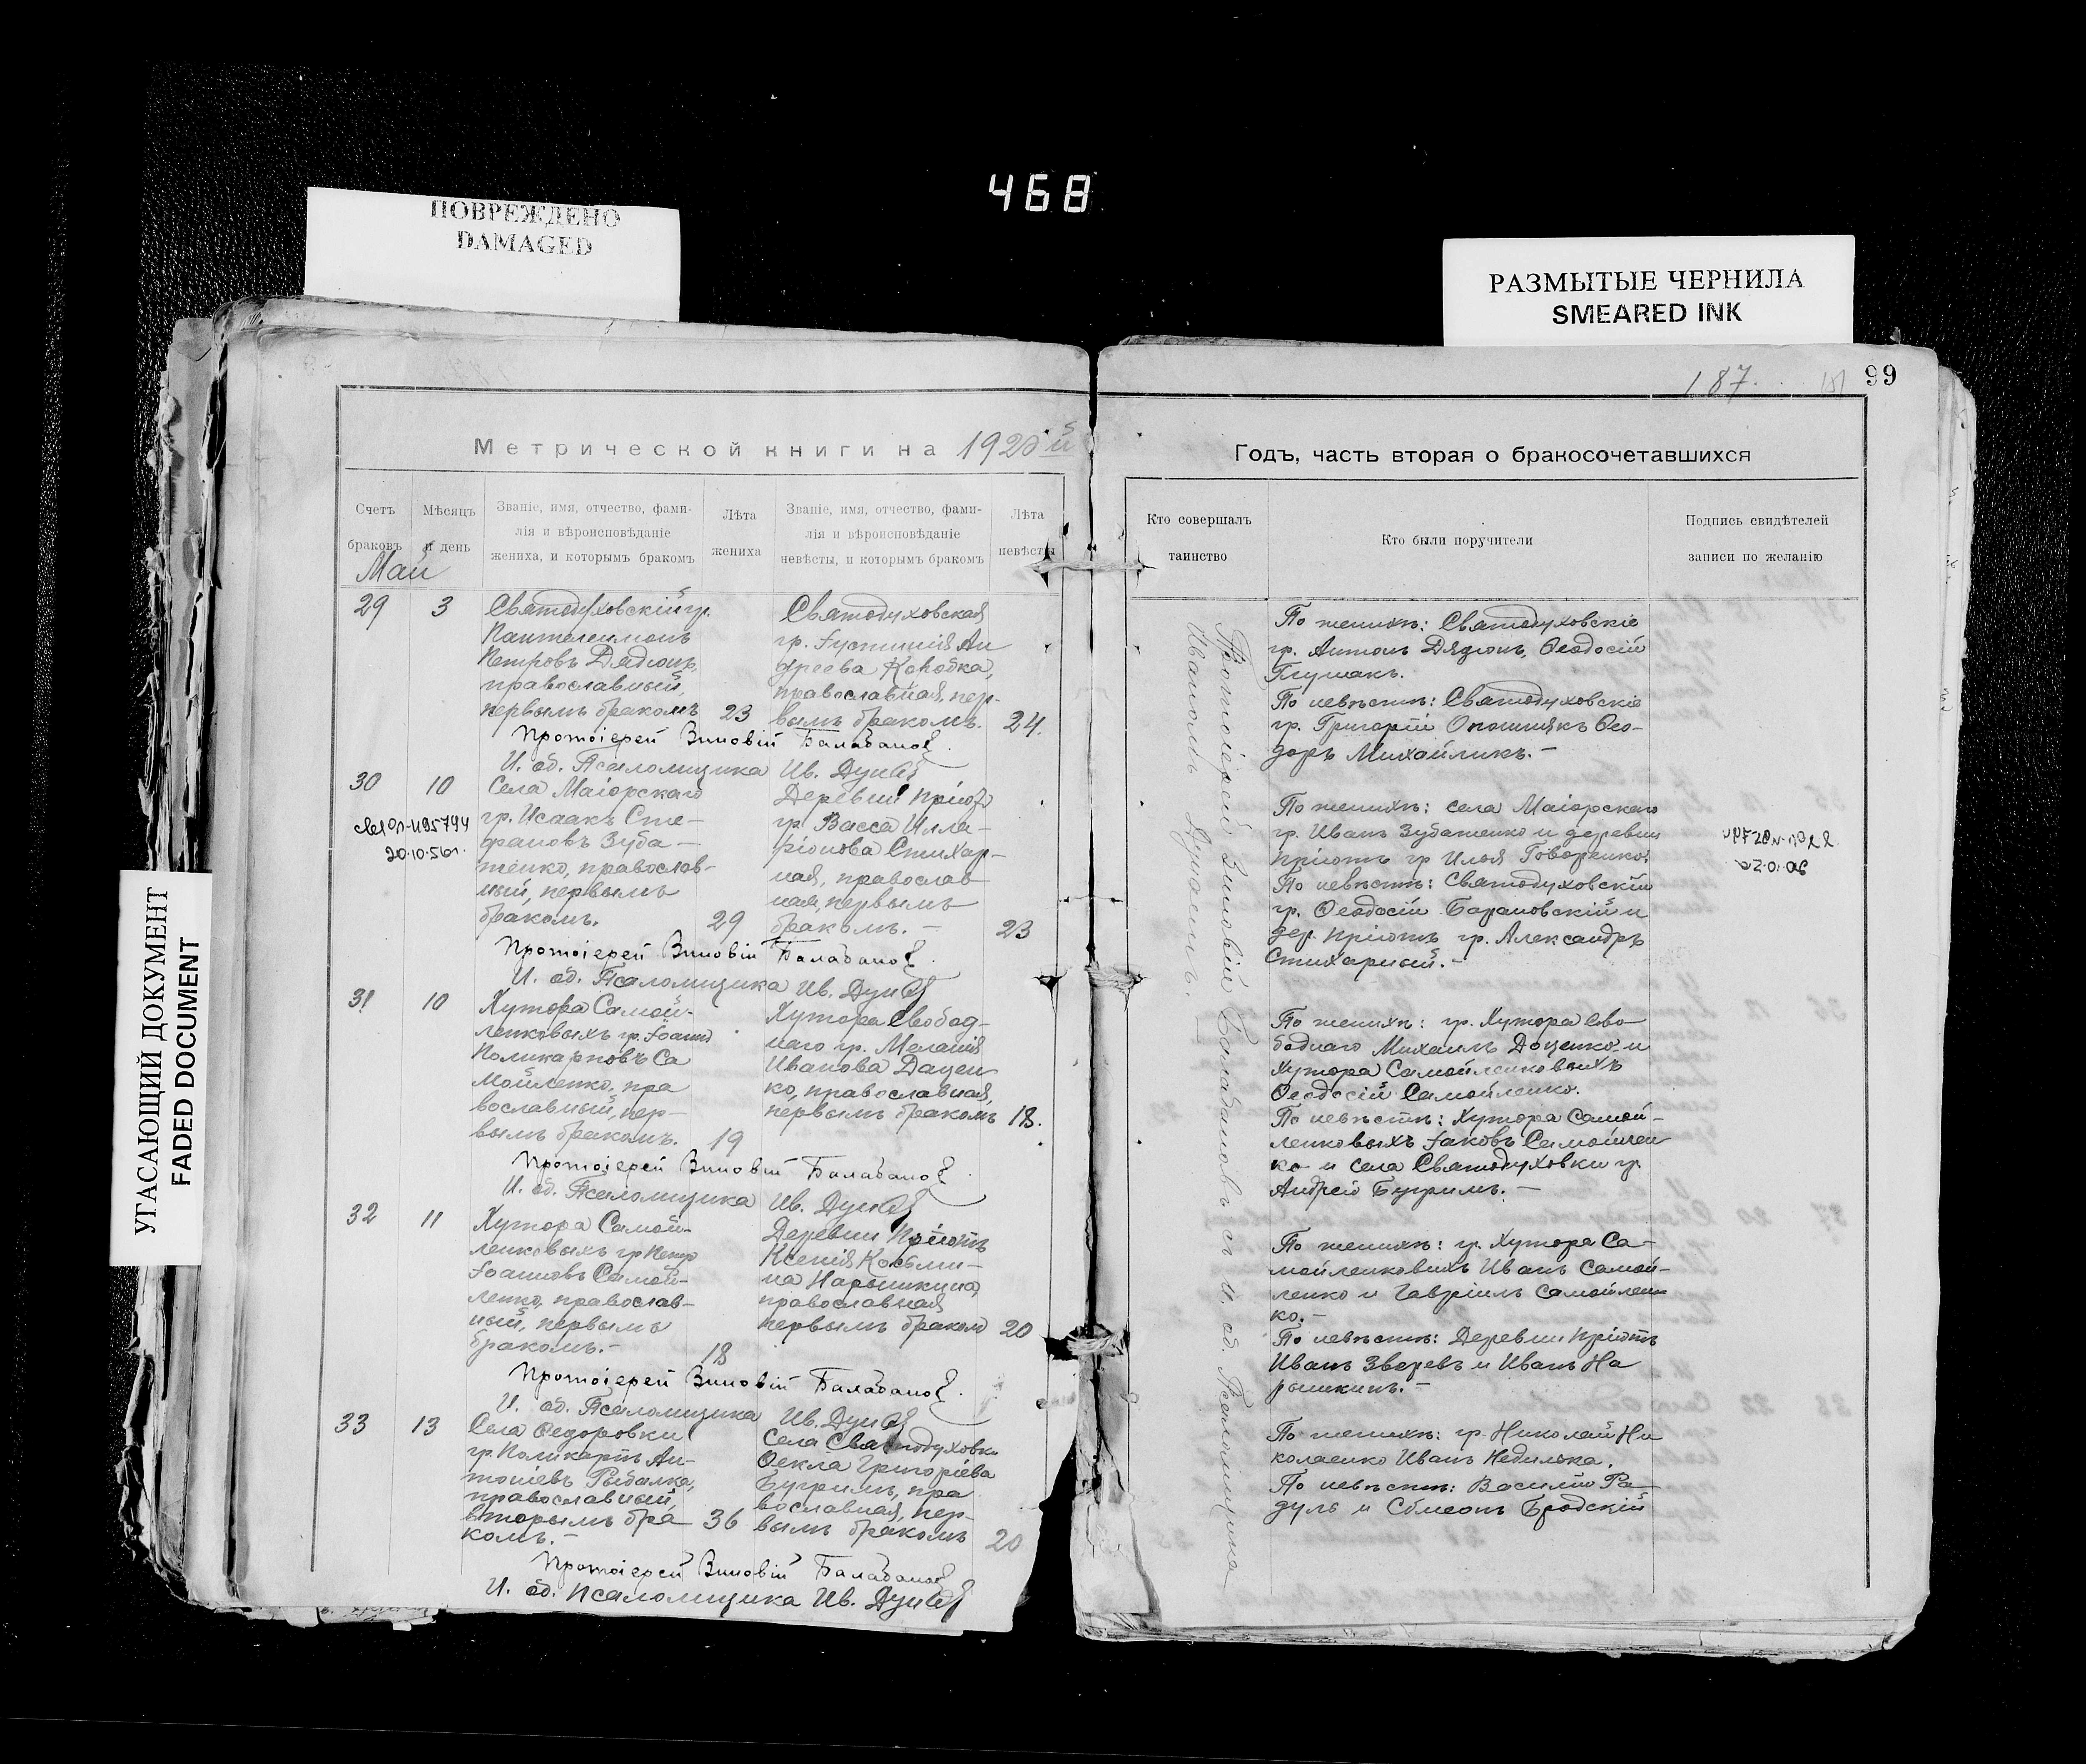 468
ПОВРЕЖДЕНО
DAMAGED
РАЗМЫТЫЕ ЧЕРНИЛА
SMEARED INK
УГАСАЮЩИЙ ДОКУМЕНТ
FADED DOCUMENT
187.
99
Метрической книги на 1920 й
Счетъ
браковъ
Мѣсяцъ
и день
Званіе, имя, отчество, фами-
лія и вѣроисповѣданіе
жениха, и которымъ бракомъ
Лѣта
жениха
Званіе, имя, отчество, фами-
лія и вѣроисповѣданіе
невѣсты, и которымъ бракомъ
Лѣта
невѣсты
Май
29
3
Святодуховскій гр.
Пантелеимонъ
Петровъ Дядюнъ,
православный,
первымъ бракомъ
23
Святодуховская
гр. Іустинія Ан
дреева Кободка,
православная, пер-
вымъ бракомъ.
24.
Протоіерей Зиновій Балабановъ.
И. об. Псаломщика Ив. Дунбѣ
30
10
20.10.56г.
Села Маіорскаго
гр. Исаакъ Сте-
фановъ Зуба-
тенко, православ-
ный, первымъ
бракомъ.
29
Деревни Пріютъ
гр. Васса Илла-
ріонова Стихар-
ная, православ
ная, первымъ
бракомъ. -
23
Протоіерей Зиновій Балабановъ.
И. об. Псаломщика Ив. Дунбѣ
31
10
Хутора Самой-
ленковыхъ гр. Іоаннъ
Поликарповъ Са
мойленко, пра
вославный, пер-
вымъ бракомъ.
19
Хутора Свобод-
наго гр. Меланія
Иванова Дацен
ко, православная,
первымъ бракомъ
18.
Протоіерей Зиновій Балабановъ.
И. об. Псаломщика Ив. Дунбѣ
32
11
Хутора Самой-
ленковыхъ гр Петръ
Іоанновъ Самой-
ленко, православ-
ный, первымъ
бракомъ.-
18
Деревни Пріютъ
Ксенія Косьми-
на Нарышкина,
православная
первымъ бракомъ
20
Протоіерей Зиновій Балабановъ.
И. об. Псаломщика Ив. Дунбѣ
33
13
Села Ѳедоровки
гр. Поликарпъ Ан-
тоніевъ Рыбалка,
православный,
вторымъ бра
комъ.-
36
Села Святодуховки
Ѳекла Григоріева
Бугримъ, пра
вославная, пер-
вымъ бракомъ
20
Протоіерей Зиновій Балабановъ
И. об. Псаломщика Ив. Дунбѣ
Годъ, часть вторая о бракосочетавшихся
Кто совершалъ
таинство
Кто были поручители
Подпись свидѣтелей
записи по желанію
Протоіерей Зиновій Балабановъ съ и. об. Псаломщика
Иваномъ
По женихѣ: Святодуховскіе
гр. Антонъ Дядюнъ, Ѳеодосій
Глушакъ.
По невѣстѣ: Святодуховскіе
гр. Григорій Опошнякъ Ѳео-
доръ Михайликъ. -
По женихѣ: села Маіорскаго
гр. Иванъ Зубатенко и деревни
Пріютъ гр Илья Говоренко.
По невѣстѣ: Святодуховскій
гр. Ѳеодосій Барановскій и
дер. Пріютъ гр. Александръ
Стихарный. -
По женихѣ: гр. Хутора Сво-
боднаго Михаилъ Доценко и
Хутора Самойленковыхъ
Ѳеодосій Самойленко.
По невѣстѣ: Хутора Самой-
ленковыхъ Іаковъ Самойлен
ко и села Святодуховки гр.
Андрей Бугримъ. -
По женихѣ: гр. Хутора Са-
мойленковыхъ Иванъ Самой-
ленко и Гавріилъ Самойлен
ко.-
По невѣстѣ: Деревни Пріютъ
Иванъ Зверевъ и Иванъ На
рышкинъ. -
По женихѣ: гр. Николай Ни
колаенко Иванъ Недилька.
По невѣстѣ: Василій Ра-
дулъ и Симеонъ Бродскій